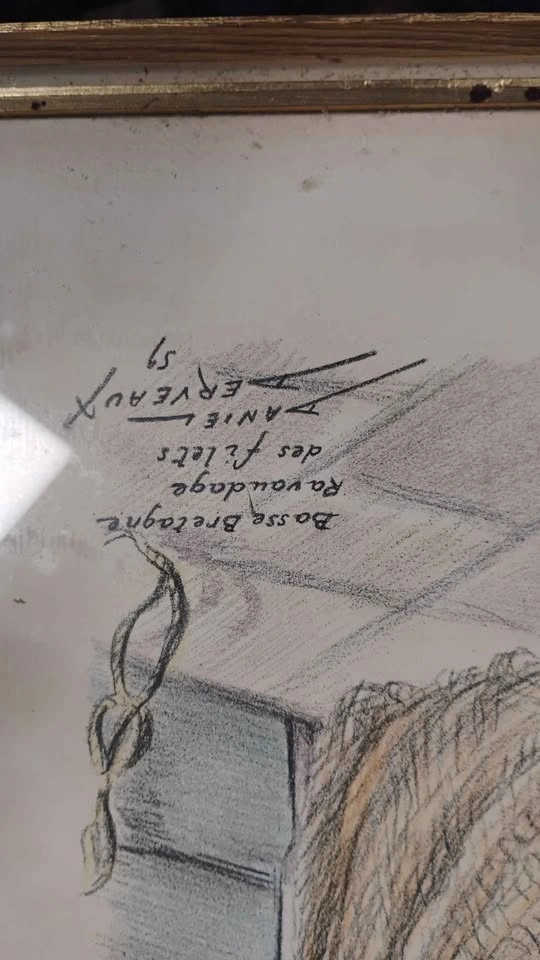 Basse Bretagne
Ravaudage
des filets
DANIEL
DERVEAUX
59